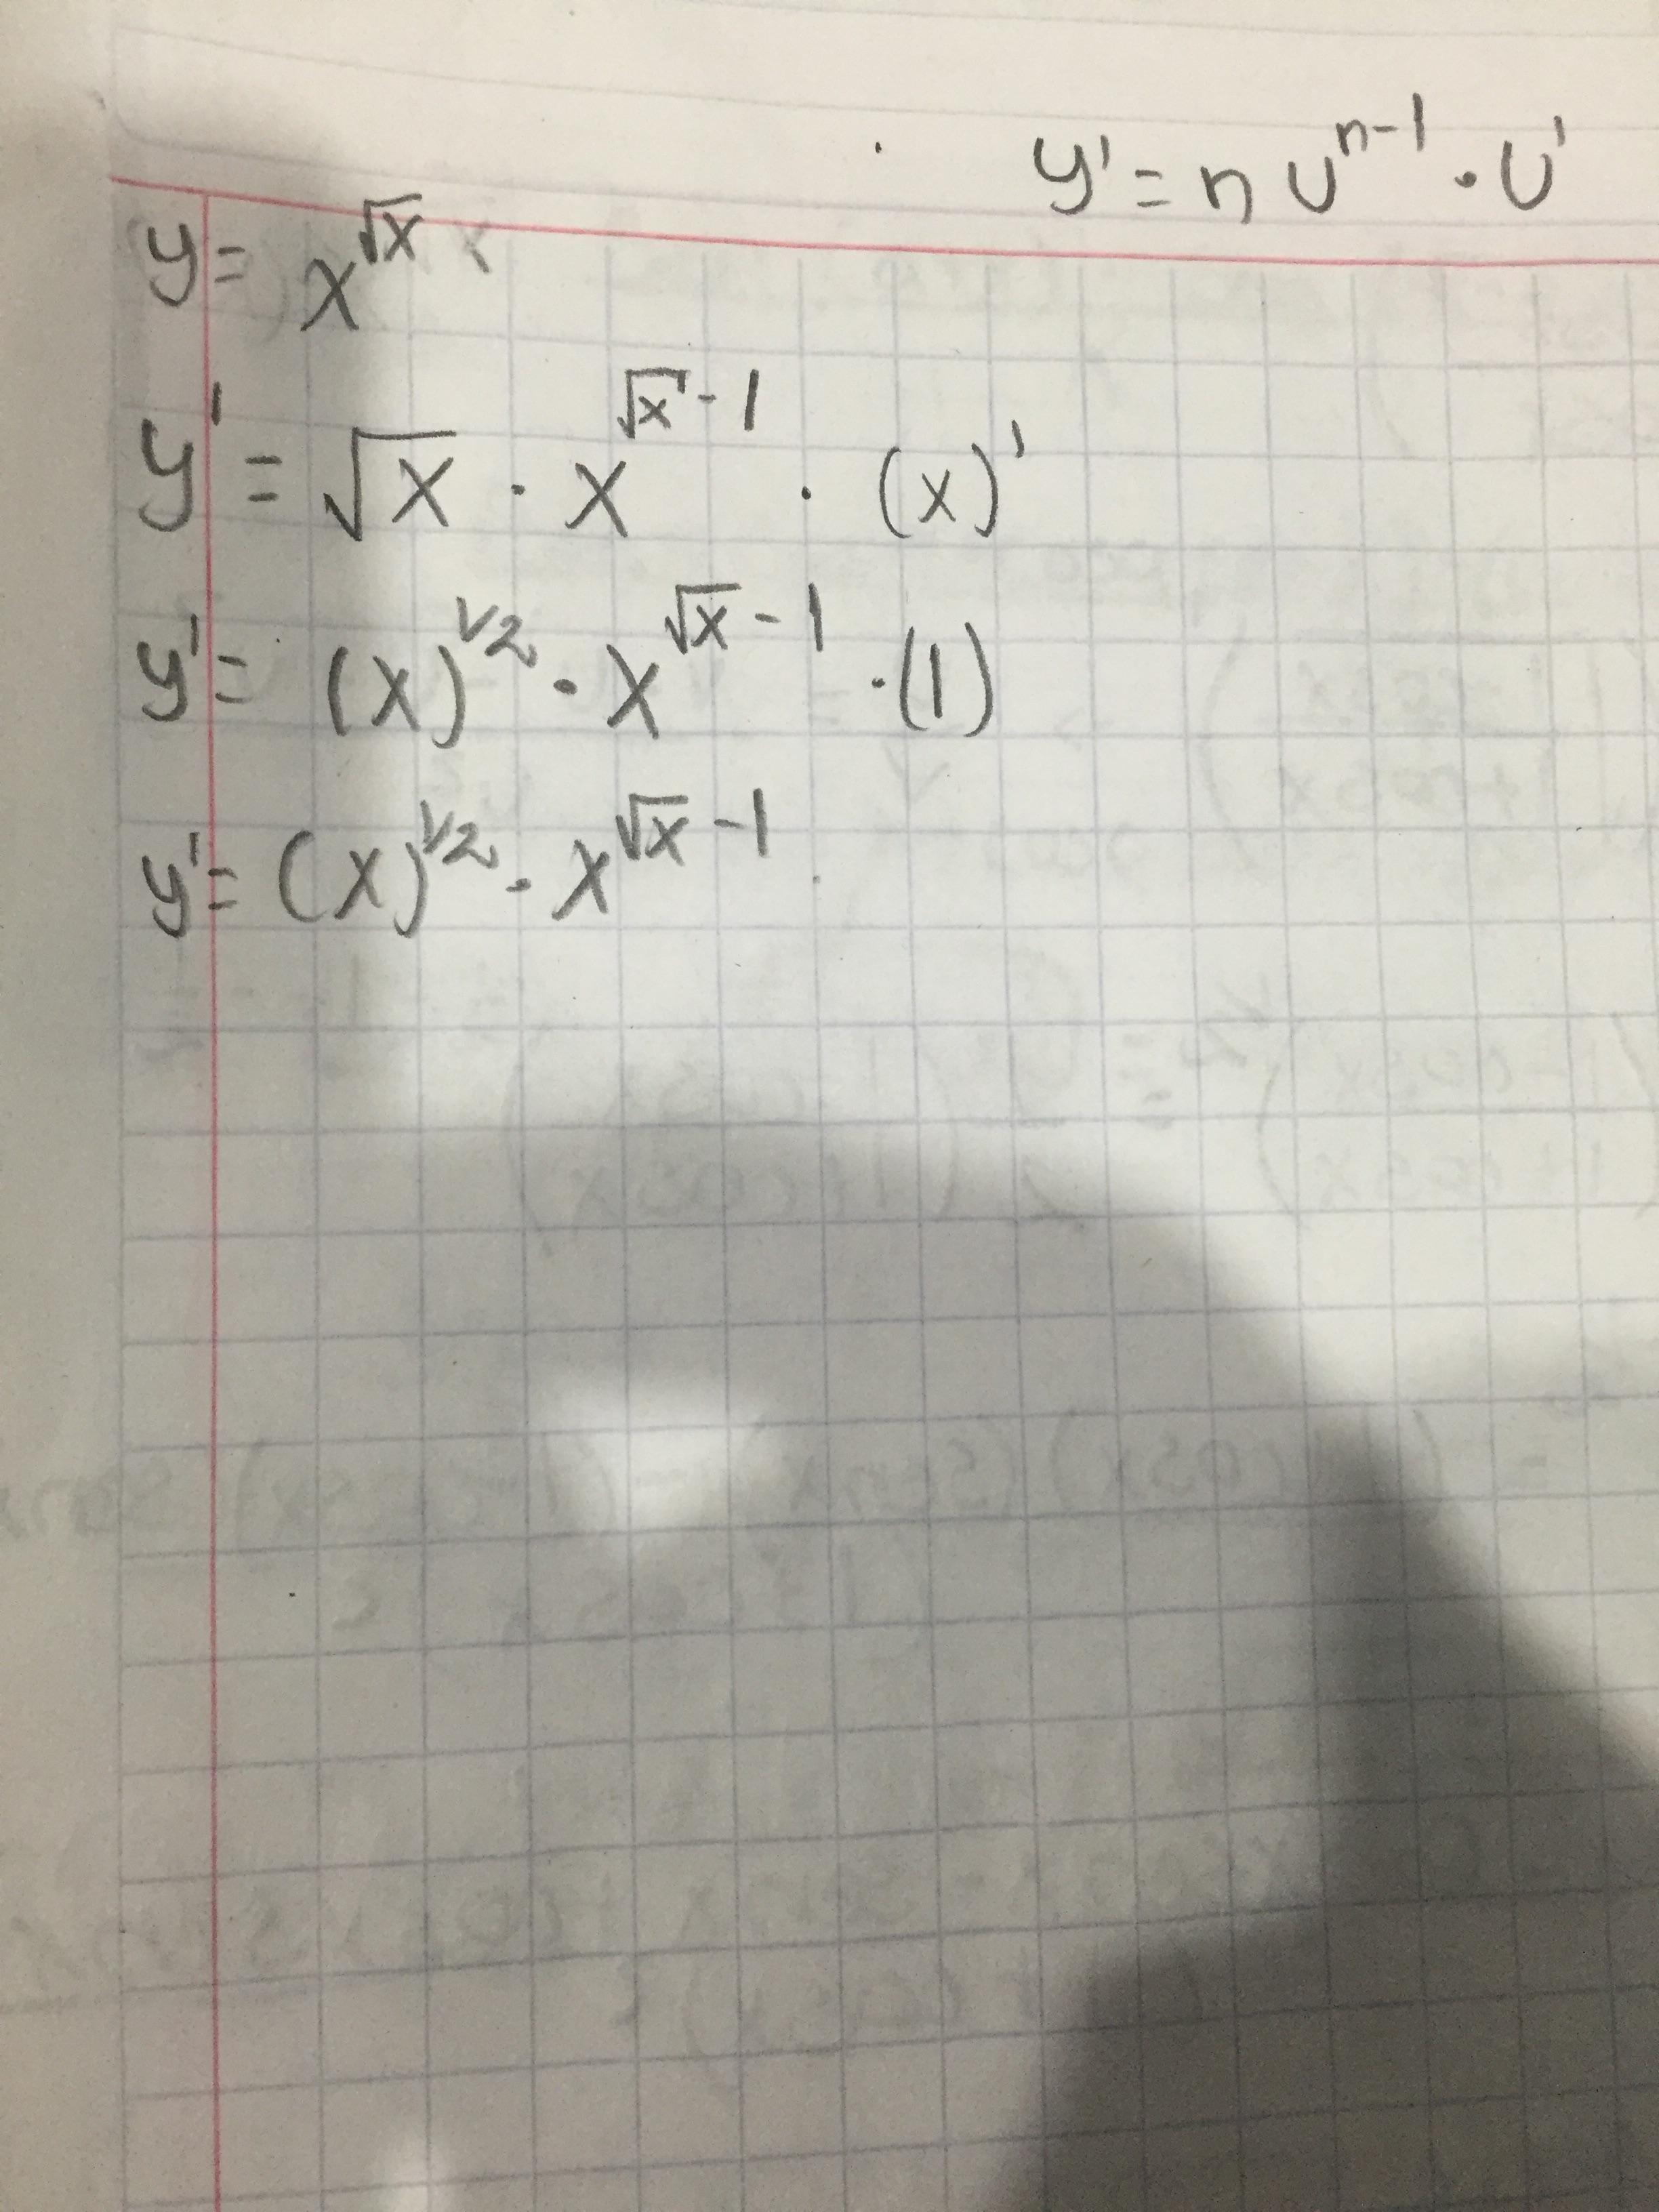 y' = n u^{n-1} · u'
y = x^{√x}
y' = √x · x^{√x - 1} · (x)'
y' = (x)^{1/2} · x^{√x - 1} · (1)
y' = (x)^{1/2} · x^{√x - 1}